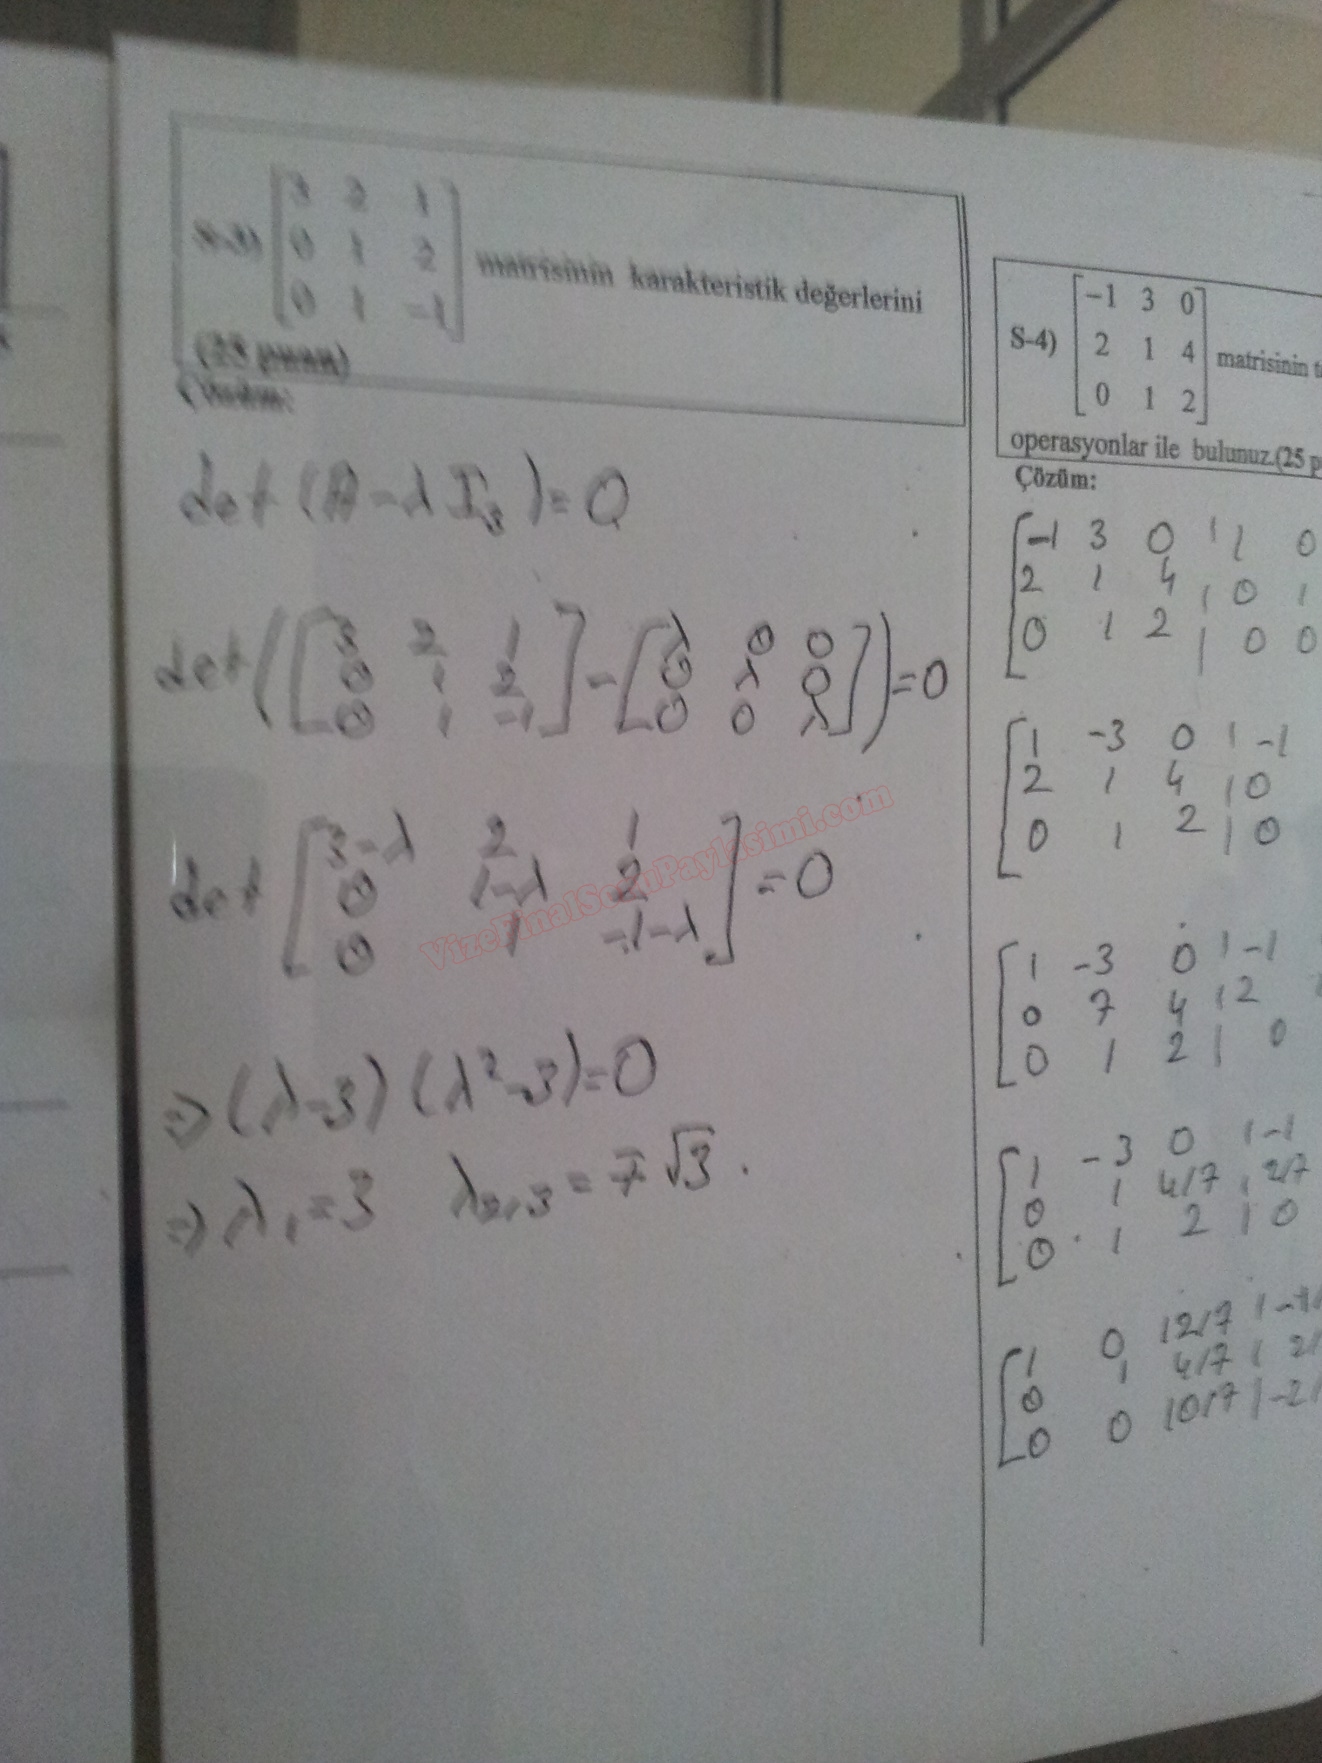 S-3) [3 2 1
0 1 2
0 1 -1] matrisinin karakteristik değerlerini
(25 puan)
Çözüm:
det (A-λI₃)=0
det([3 2 1
0 1 2
0 1 -1] - [λ 0 0
0 λ 0
0 0 λ])=0
det [3-λ 2 1
0 1-λ 2
0 1 -1-λ] =0
⇒ (λ-3) (λ²-3)=0
⇒ λ₁=3 λ₂,₃ = ∓√3 .
VizeFinalSoruPaylasimi.com
S-4) [-1 3 0
2 1 4
0 1 2] matrisinin
operasyonlar ile bulunuz.(25
Çözüm:
[-1 3 0 | 1 0
2 1 4 | 0 1
0 1 2 | 0 0
[1 -3 0 | -1
2 1 4 | 0
0 1 2 | 0
[1 -3 0 | -1
0 7 4 | 2
0 1 2 | 0
[1 -3 0 | -1
0 1 4/7 | 2/7
0 1 2 | 0
[1 0 12/7 |
0 1 4/7 |
0 0 10/7 |